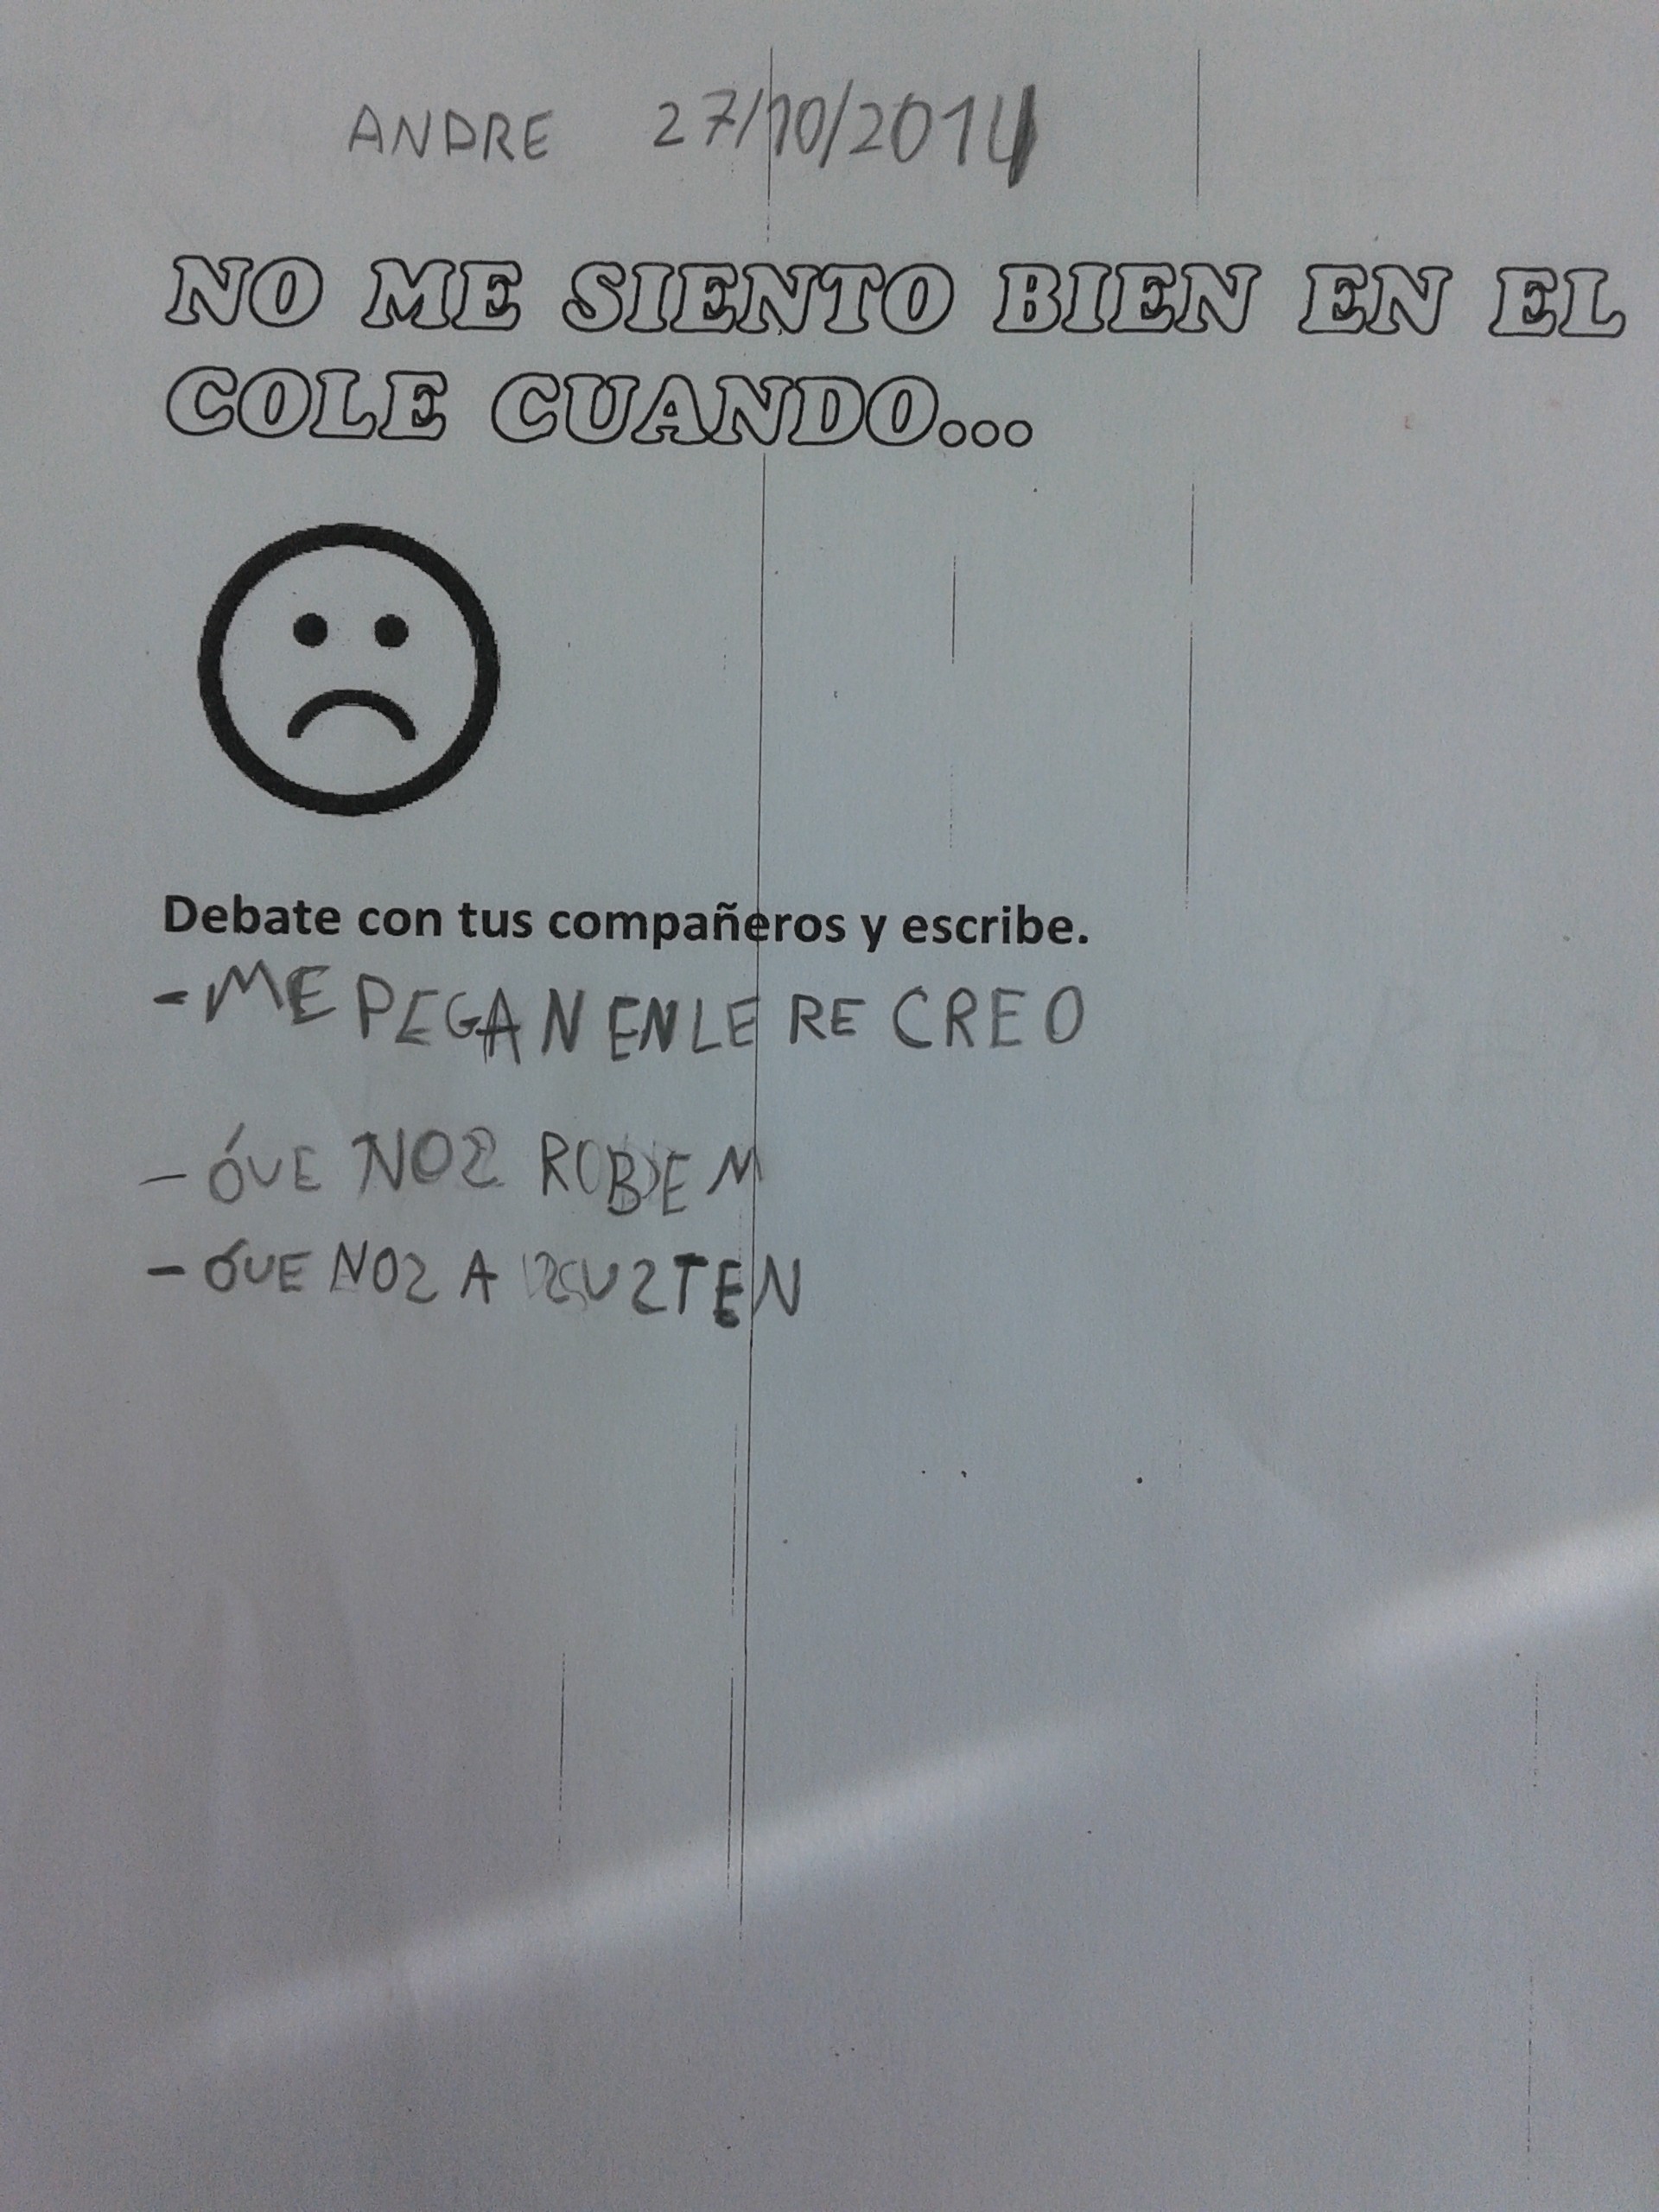 ANDRE 27/10/2014
NO ME SIENTO BIEN EN EL
COLE CUANDO...
Debate con tus compañeros y escribe.
- ME PEGAN EN LE RE CREO
- QUE NOS ROBEN
- QUE NOS A SUSTEN